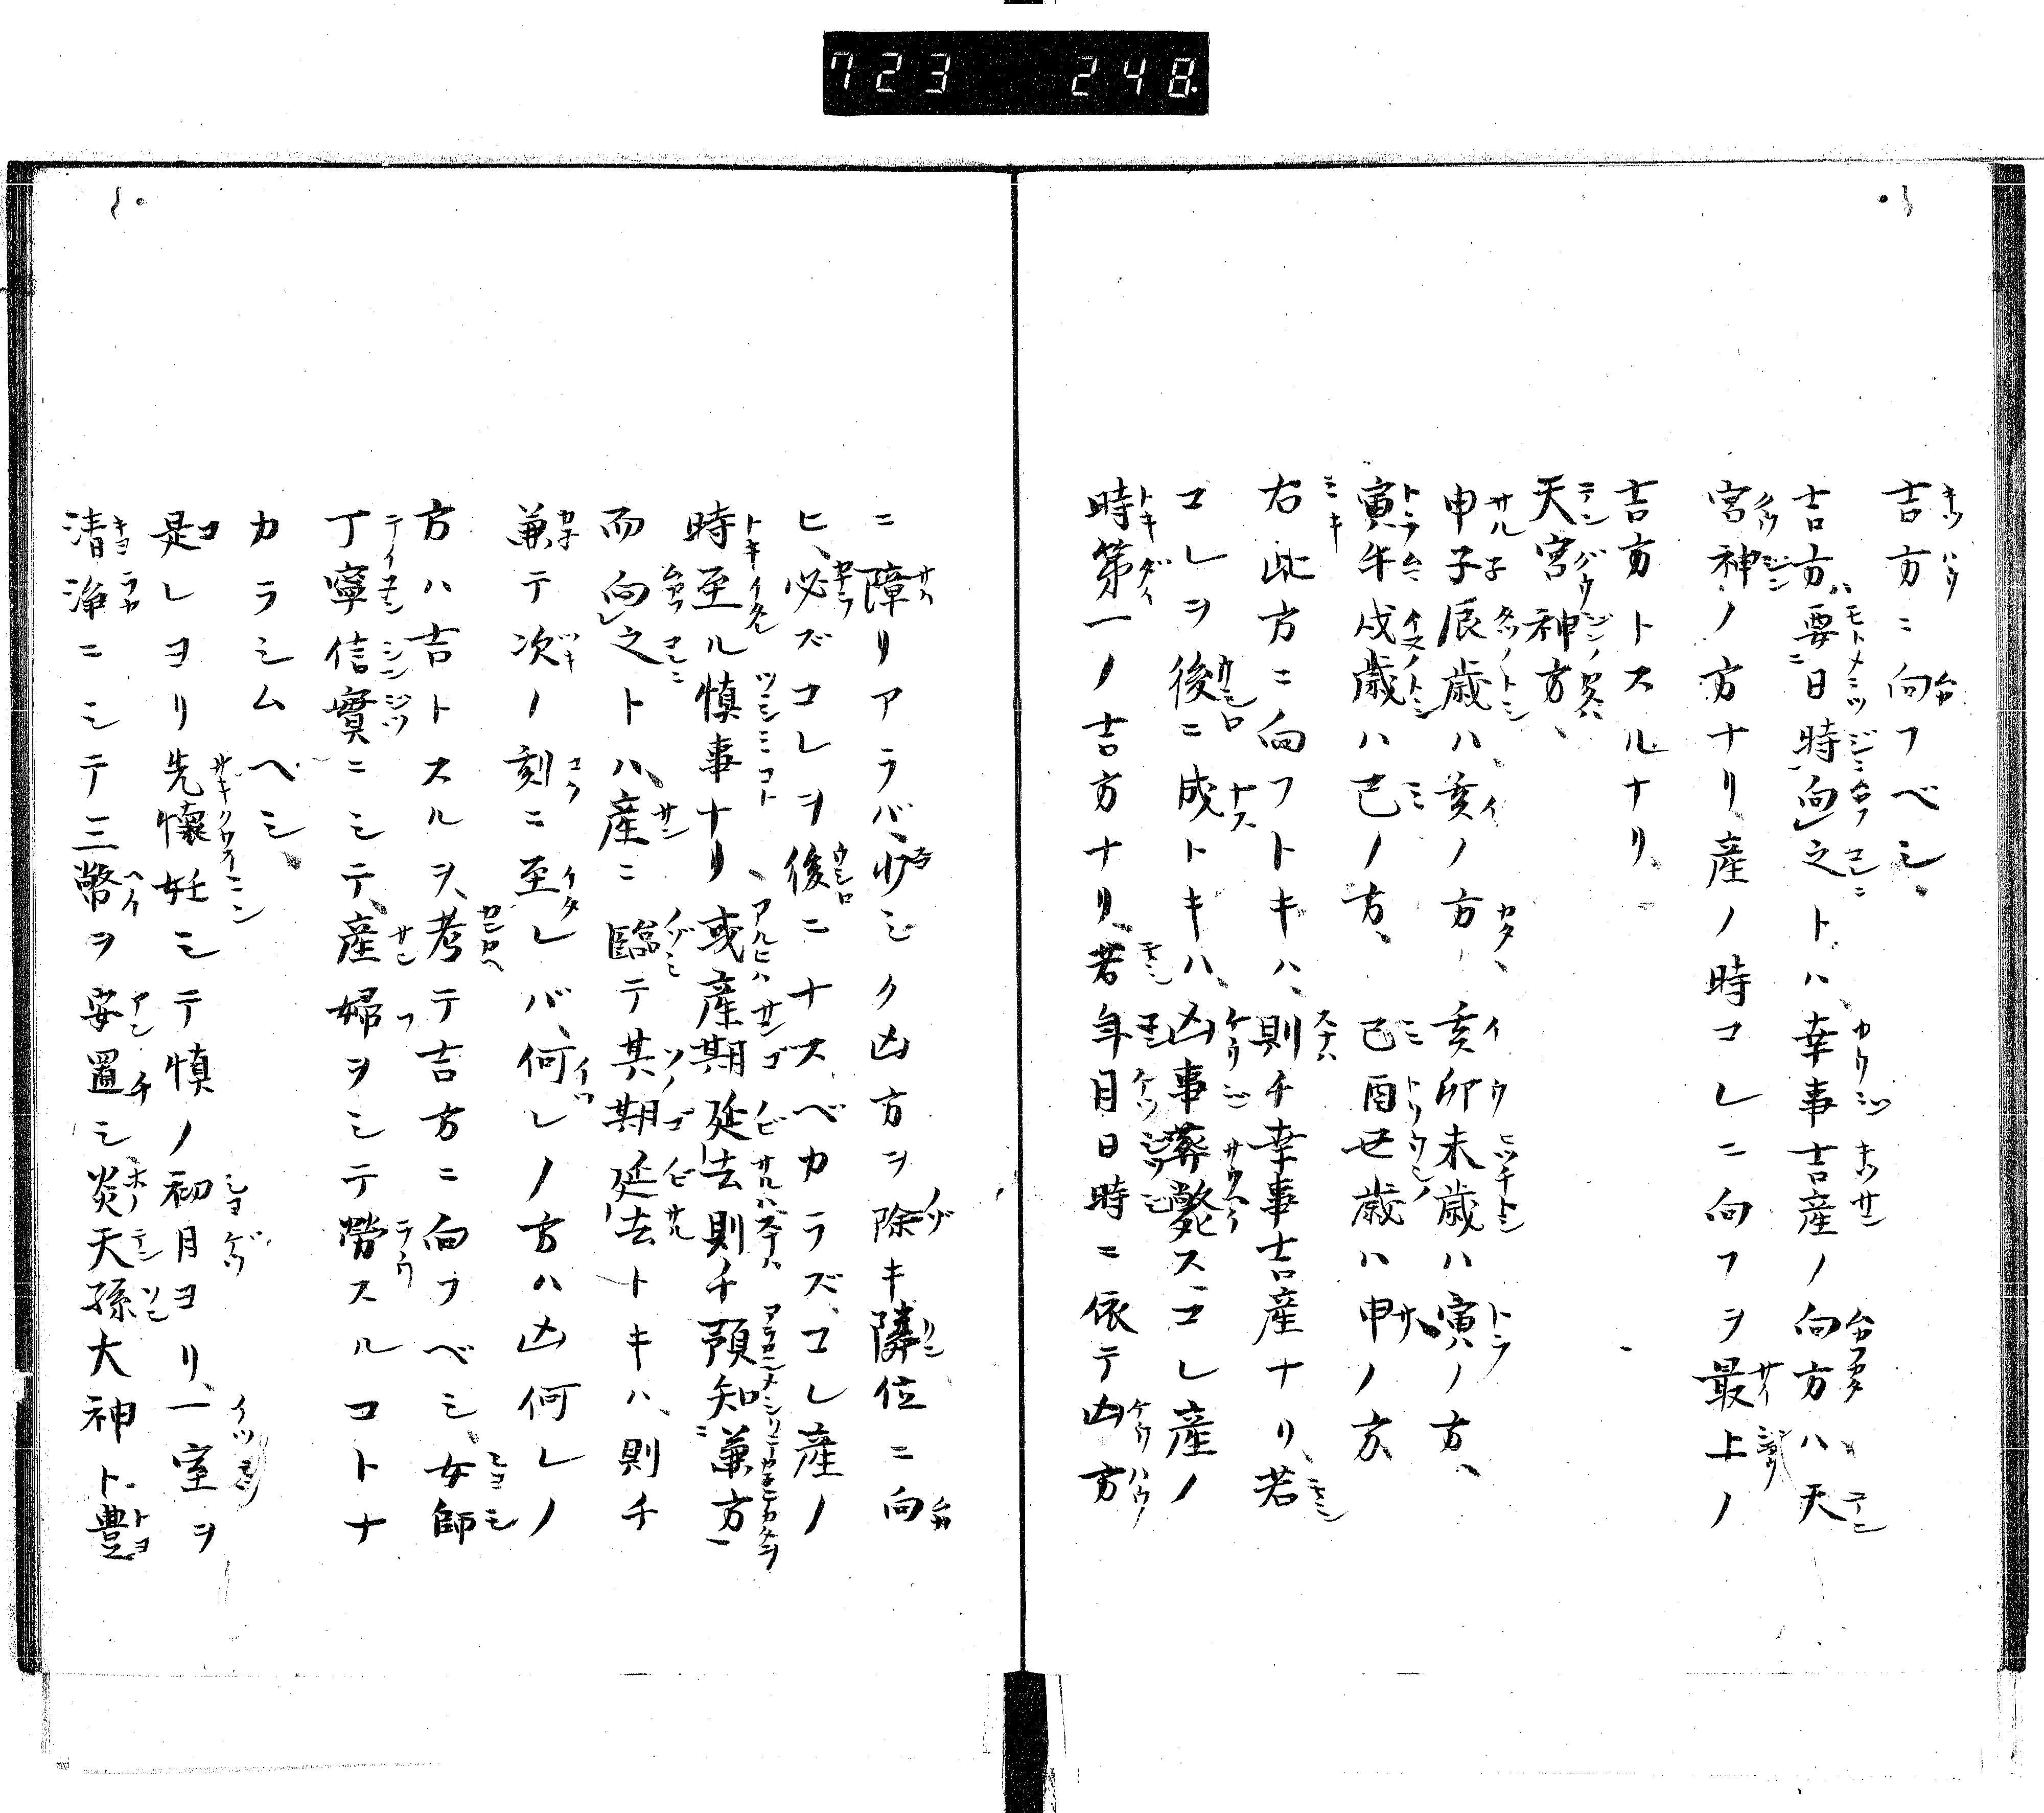 723 248
吉方ニ向フベシ、
吉方ハ要ニ日時向レ之トハ、幸事吉産ノ向方ハ、天
宮神ノ方ナリ、産ノ時コレニ向フヲ最上ノ
吉方トスルナリ、
天宮神方、
申子辰歳ハ、亥ノ方、亥卯未歳ハ寅ノ方、
寅午戌歳ハ巳ノ方、巳酉丑歳ハ申ノ方、
右此方ニ向フトキハ、則チ幸事吉産ナリ、若
コレヲ後ニ成トキハ、凶事葬斃ス、コレ産ノ
時第一ノ吉方ナリ、若年月日時ニ依テ凶方
ニ障リアラバ、少シク凶方ヲ除キ隣位ニ向
ヒ、必ズコレヲ後ニナスベカラズ、コレ産ノ
時至ル慎事ナリ、或産期延去則チ預知ニ兼方一
而向レ之トハ、産ニ臨テ其期延去トキハ、則チ
兼テ次ノ刻ニ至レバ、何レノ方ハ凶何レノ
方ハ吉トスルヲ、考テ吉方ニ向フベシ、女師
丁寧信實ニシテ、産婦ヲシテ勞スルコトナ
カラシムヘシ、
是レヨリ先懐妊シテ慎ノ初月ヨリ、一室ヲ
清浄ニシテ三幣ヲ安置シ、炎天孫大神ト豊